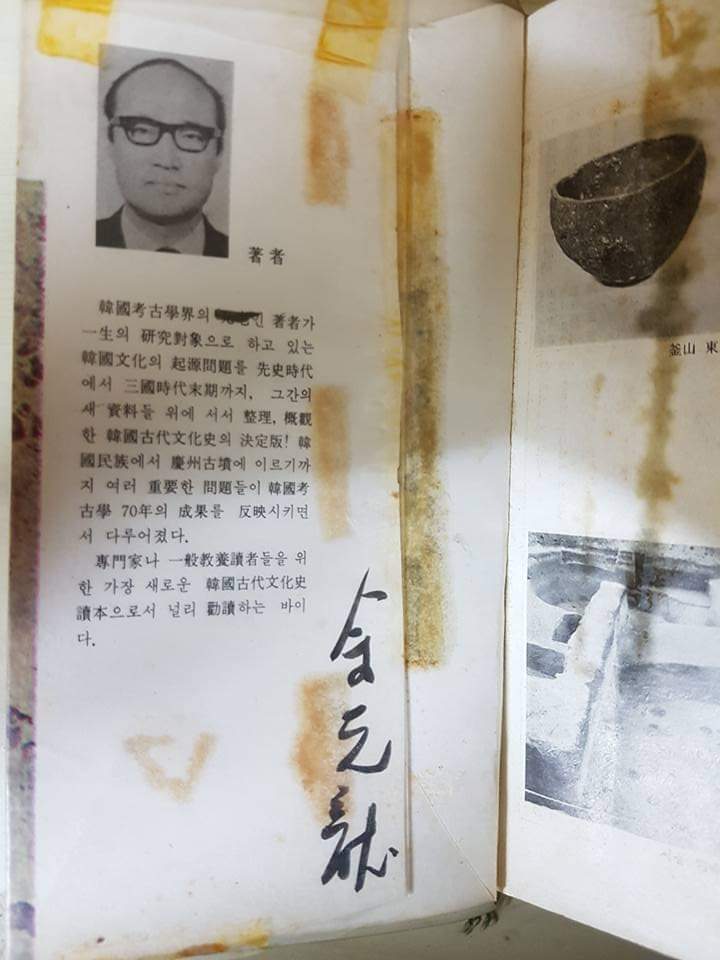 著者
韓國考古學界의 著者가
一生의 硏究對象으로 하고 있는
韓國文化의 起源問題를 先史時代
에서 三國時代末期까지, 그간의
새 資料들 위에 서서 整理, 概觀
한 韓國古代文化史의 決定版! 韓
國民族에서 慶州古墳에 이르기까
지 여러 重要한 問題들이 韓國考
古學 70年의 成果를 反映시키면
서 다루어졌다.
專門家나 一般敎養讀者들을 위
한 가장 새로운 韓國古代文化史
讀本으로서 널리 勸讀하는 바이
다.
金元龍
釜山 東